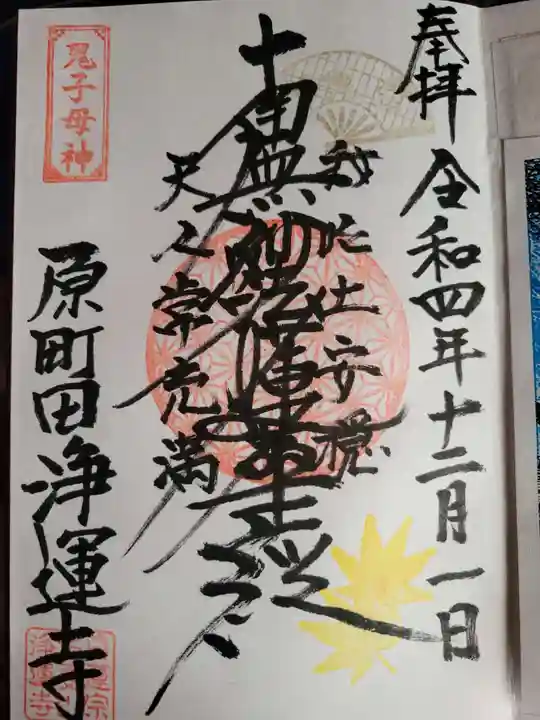 奉拝
令和四年十二月一日
我此土安穏
南無妙法蓮華経
天人常充満
鬼子母神
原町田浄運寺